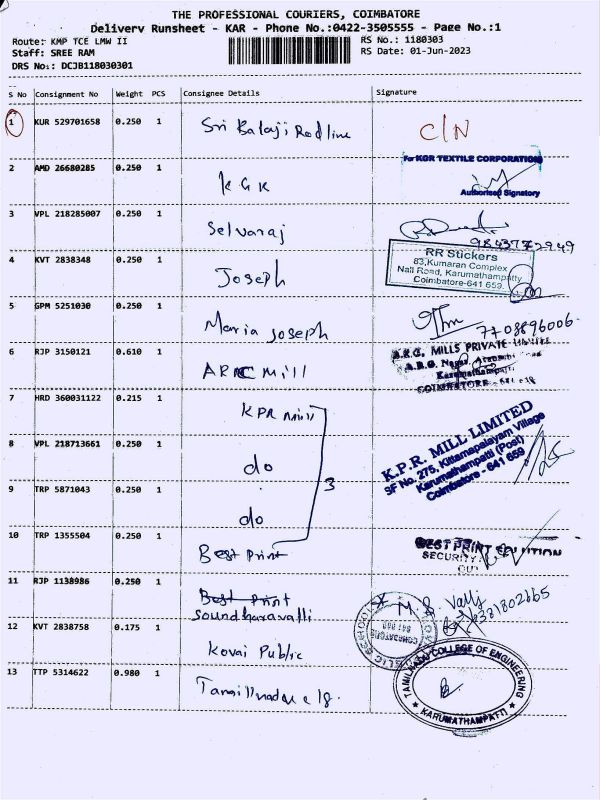 THE PROFESSIONAL COURIERS, COIMBATORE
Delivery Runsheet - KAR - Phone No.:0422-3505555 - Page No.:1
Route: KMP TCE LMW II
RS No.: 1180303
Staff: SREE RAM
RS Date: 01-Jun-2023
DRS No.: DCJB118030301
S No Consignment No Weight PCS Consignee Details Signature
1 KUR 529701658 0.250 1 Sri Balaji Redline C/N
2 AMD 26680285 0.250 1 KGK
For KGR TEXTILE CORPORATION
Authorised Signatory
3 VPL 218285007 0.250 1 Selvaraj
9843772949
4 KVT 2838348 0.250 1 Joseph
RR Stickers
83,Kumaran Complex
Nall Road, Karumathampatty
Coimbatore-641 659.
5 GPM 5251030 0.250 1 Maria Joseph
7708896006
6 RJP 3150121 0.610 1 ARC Mill
MILLS PRIVATE LIMITED
Karumathampatti
COIMBATORE
7 HRD 360031122 0.215 1 KPR Mill
8 VPL 218713661 0.250 1 do
3
9 TRP 5871043 0.250 1 do
K.P.R. MILL LIMITED
SF No. 275, Kittampalayam Village
Karumathampatti (Post)
Coimbatore - 641 659
10 TRP 1355504 0.250 1 Best Print
BEST PRINT
SECURITY
OUT
11 RJP 1138986 0.250 1 Best Print
Soundharavalli
M.S. Valli
12 KVT 2838758 0.175 1 Kovai Public
COIMBATORE
13 TTP 5314622 0.980 1 Tamillnadu clg.
TAMILNADU COLLEGE OF ENGINEERING
KARUMATHAMPATTI